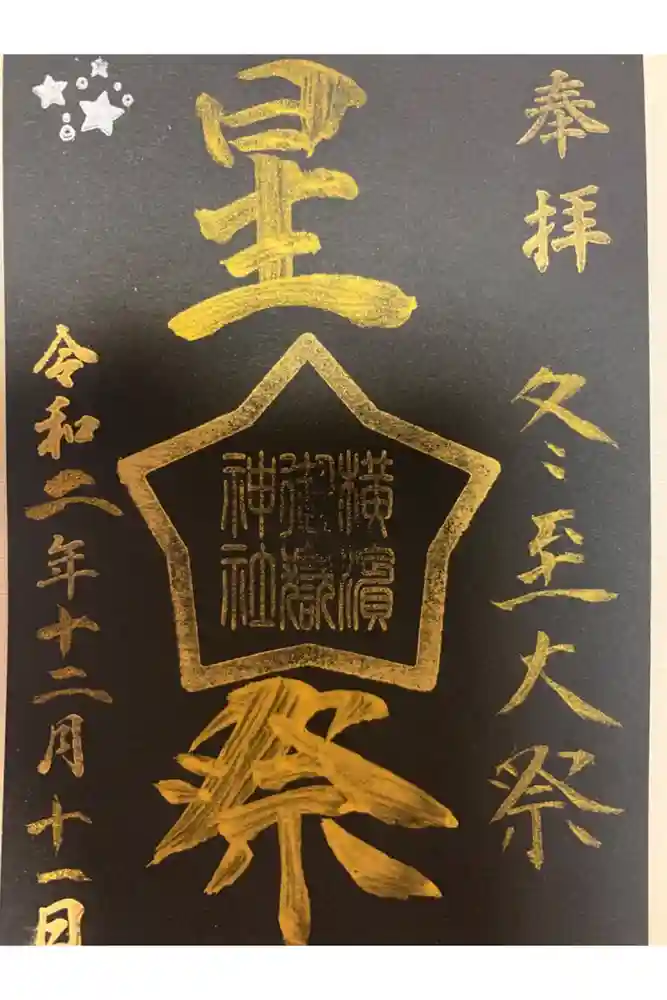 奉拝
冬至大祭
星
横濱
御嶽
神社
祭
令和二年十二月十一日